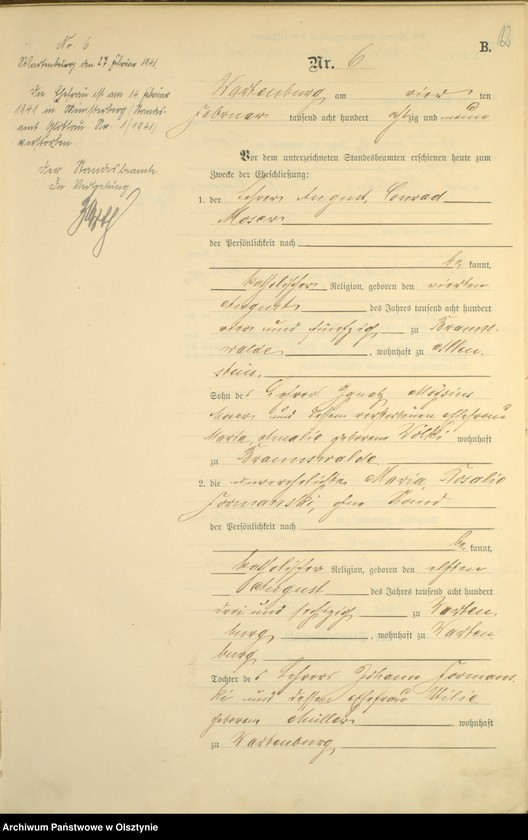 Nr. 6
Wartenburg, den 27. Februar 1941
Die Ehefrau ist am 14. Februar
1941 in Münsterberg, Standes-
amt Nr. 1/1941
verstorben.
Der Standesbeamte
In Vertretung
B.
Nr. 6
Wartenburg, am vier ten
Februar tausend acht hundert achtzig und neun
Vor dem unterzeichneten Standesbeamten erschienen heute zum
Zwecke der Eheschließung:
1. der Lehrer August, Conrad
Moser
der Persönlichkeit nach
be kannt,
katholischer Religion, geboren den vierten
August des Jahres tausend acht hundert
vier und fünfzig zu Brauns-
walde, wohnhaft zu Allen-
stein,
Sohn des Lehrer Ignatz Aloysius
Moser und dessen verstorbenen Ehefrau
Maria, Amalie geborene Wölki wohnhaft
zu Braunswalde
2. die unverehelichte Maria, Rosalie
Formanski, ohne Stand
der Persönlichkeit nach
be kannt,
katholischer Religion, geboren den elften
August des Jahres tausend acht hundert
drei und sechzig zu Warten-
burg, wohnhaft zu Warten
burg
Tochter des Lehrers Johann Formans-
ki und dessen Ehefrau
geborene Müller wohnhaft
zu Wartenburg
Archiwum Państwowe w Olsztynie